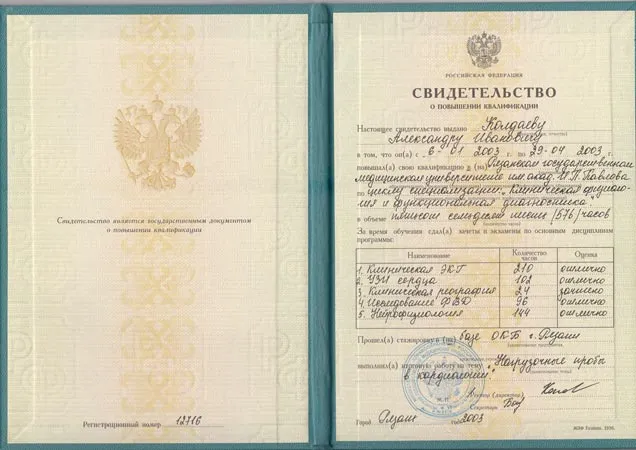 Свидетельство является государственным документом
о повышении квалификации
Регистрационный номер 12716
РОССИЙСКАЯ ФЕДЕРАЦИЯ
СВИДЕТЕЛЬСТВО
О ПОВЫШЕНИИ КВАЛИФИКАЦИИ
Настоящее свидетельство выдано Колдаеву
Александру Ивановичу
в том, что он(а) с 6-01 2003 г. по 29-04 2003 г.
повышал(а) свою квалификацию в (на) Рязанском государственном
медицинском университете им. акад. И П Павлова
по циклу специализации: Клиническая физиоло-
гия и функциональная диагностика.
в объеме пятьсот семьдесят шести /576/ часов
За время обучения сдал(а) зачеты и экзамены по основным дисциплинам
программы:
Наименование Количество часов Оценка
1. Клиническая ЭКГ 210 отлично
2. УЗИ сердца 102 отлично
3. Клиническая реография 24 зачтено
4. Исследование ФВД 96 отлично
5. Нейрофизиология 144 отлично
Прошел(а) стажировку в (на) базе ОКБ г. Рязани
выполнил(а) итоговую работу на тему Нагрузочные пробы
в кардиологии.
М.П.
Ректор (директор)
Секретарь
Город Рязань год 2003